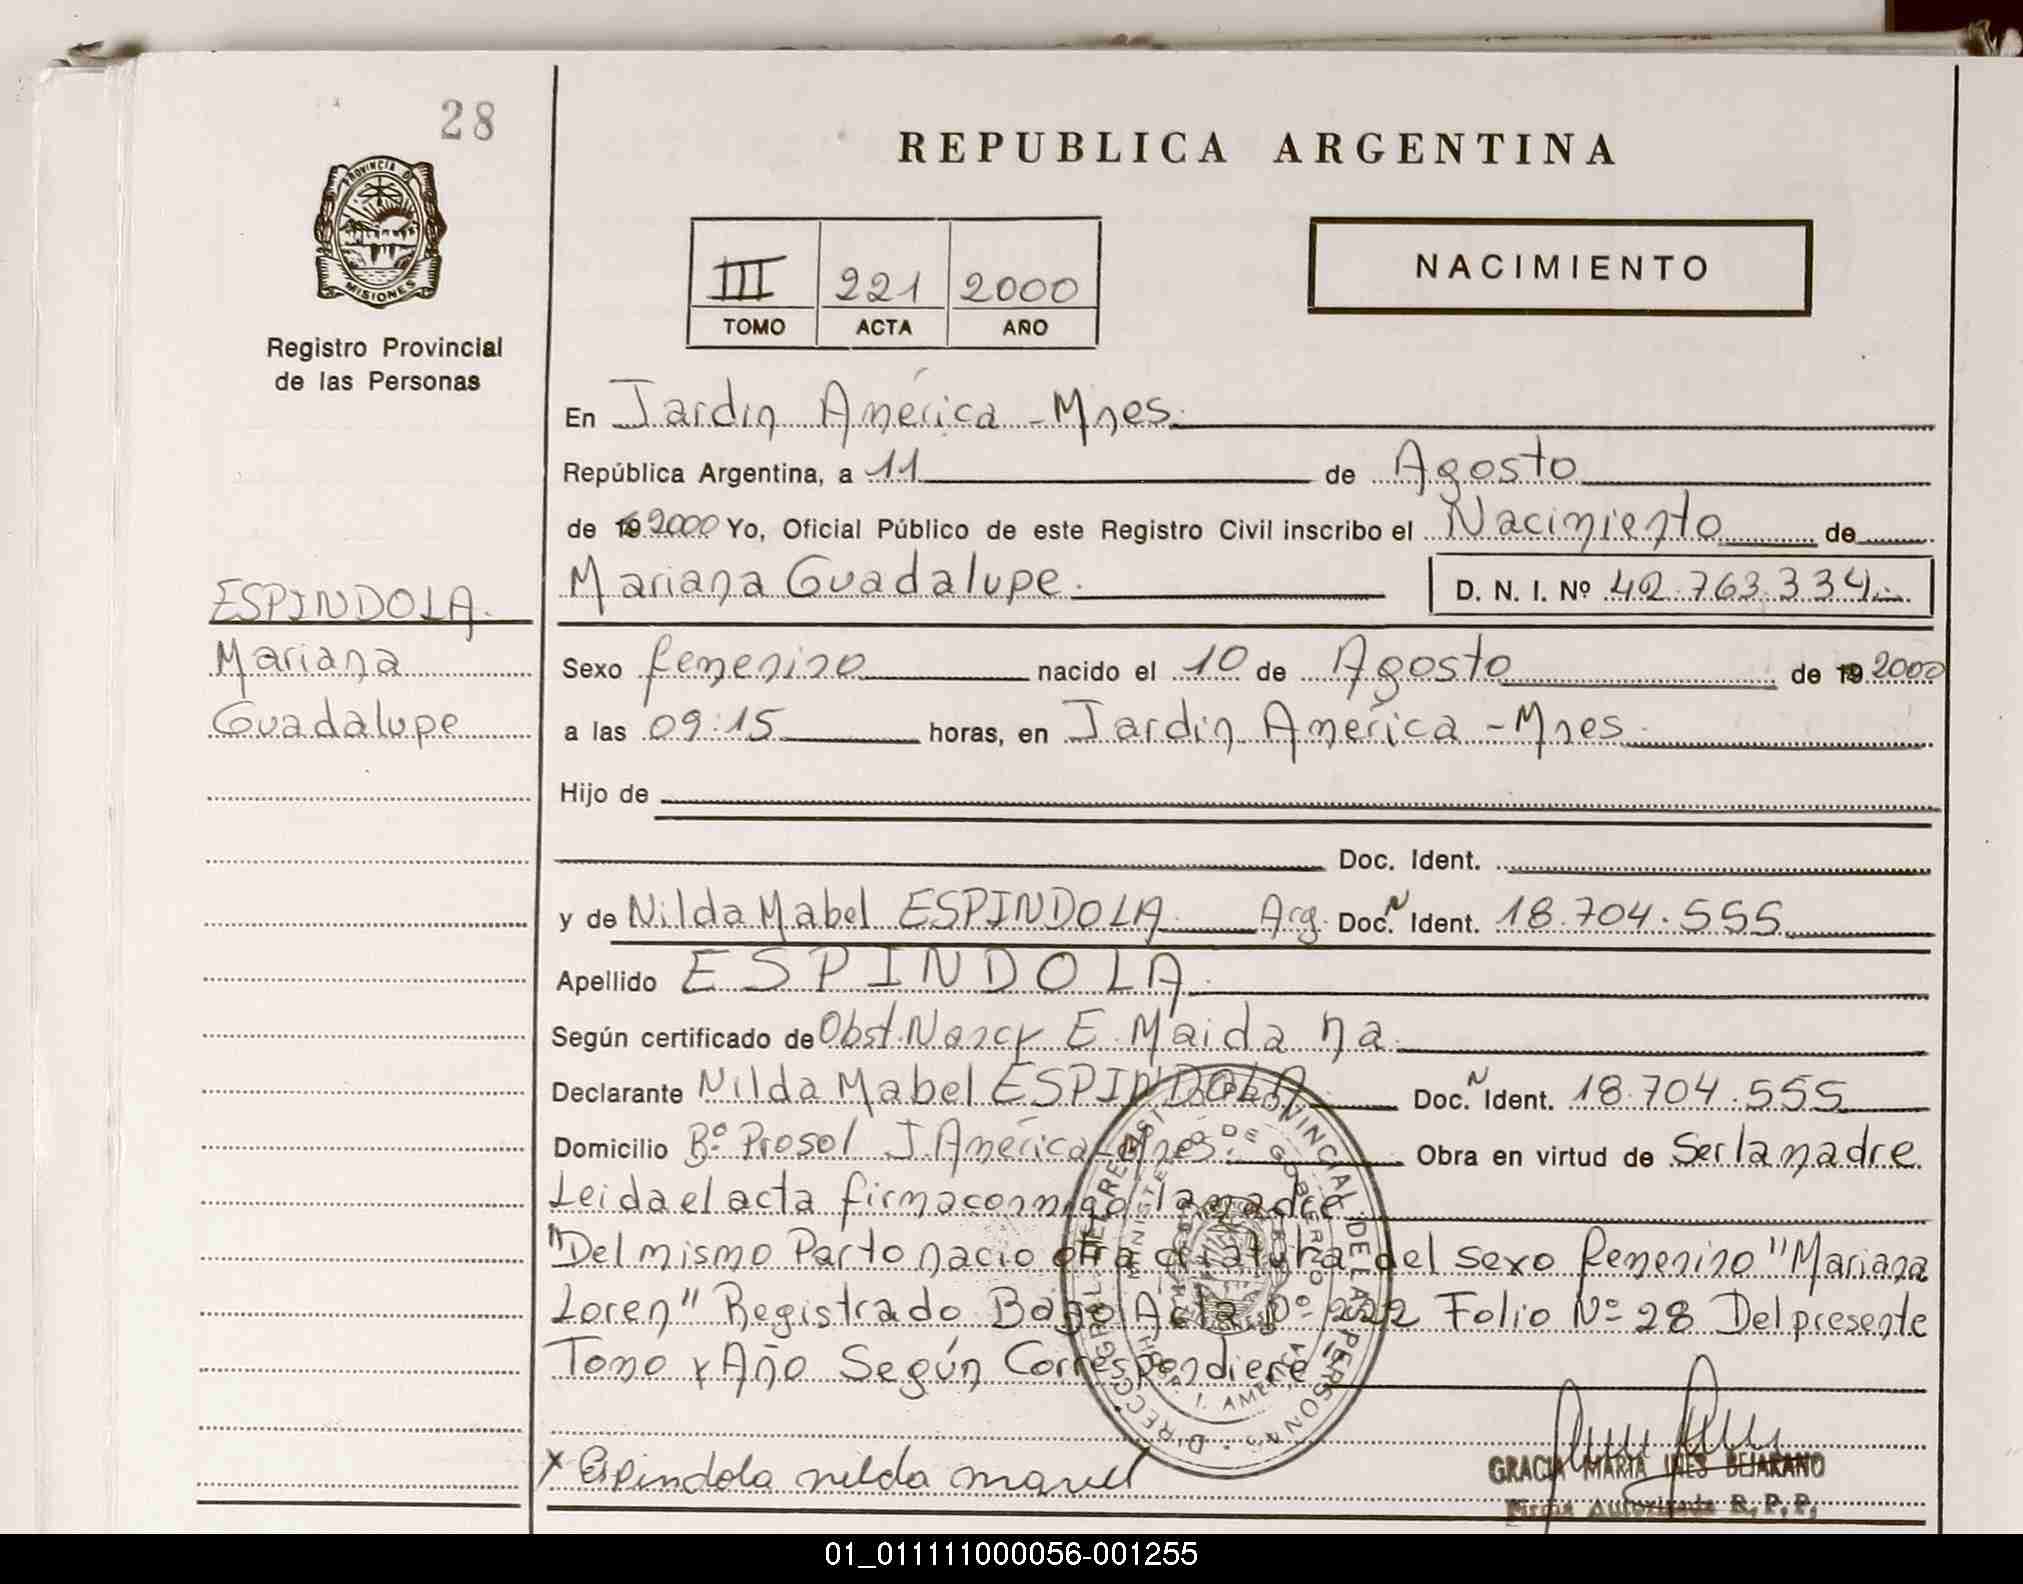 28
REPUBLICA ARGENTINA
PROVINCIA DE
MISIONES
Registro Provincial
de las Personas
NACIMIENTO
III 221 2000
TOMO ACTA AÑO
En Jardin América - Mnes.
República Argentina, a 11 de Agosto
de 19 2000 Yo, Oficial Público de este Registro Civil inscribo el Nacimiento de
Mariana Guadalupe. D. N. I. Nº 42.763.334.
ESPINDOLA.
Mariana
Guadalupe
Sexo femenino nacido el 10 de Agosto de 19 2000
a las 09:15 horas, en Jardin América - Mnes.
Hijo de
Doc. Ident.
y de Nilda Mabel ESPINDOLA. Arg. Doc. N Ident. 18.704.555
Apellido ESPINDOLA.
Según certificado de Obst. Nancy E. Maida na.
Declarante Nilda Mabel ESPINDOLA. Doc. N Ident. 18.704.555
Domicilio Bº Prosol J. América - Mnes. Obra en virtud de Ser la madre.
Leida el acta firma conmigo la madre
"Del mismo Parto nacio otra criatura del sexo femenino "Mariana
Loren" Registrado Bajo Acta Nº 222 Folio Nº 28 Del presente
Tomo y Año Según Correspondiere"
DIRECC. GRAL. DEL REGIST. PROVINCIAL DE LAS PERSONAS
MINISTERIO DE GOBIERNO
J. AMERICA
x Espindola nilda mavel
GRACIA MARIA INES BEJARANO
Firma Autorizada R.P.P.
01_011111000056-001255